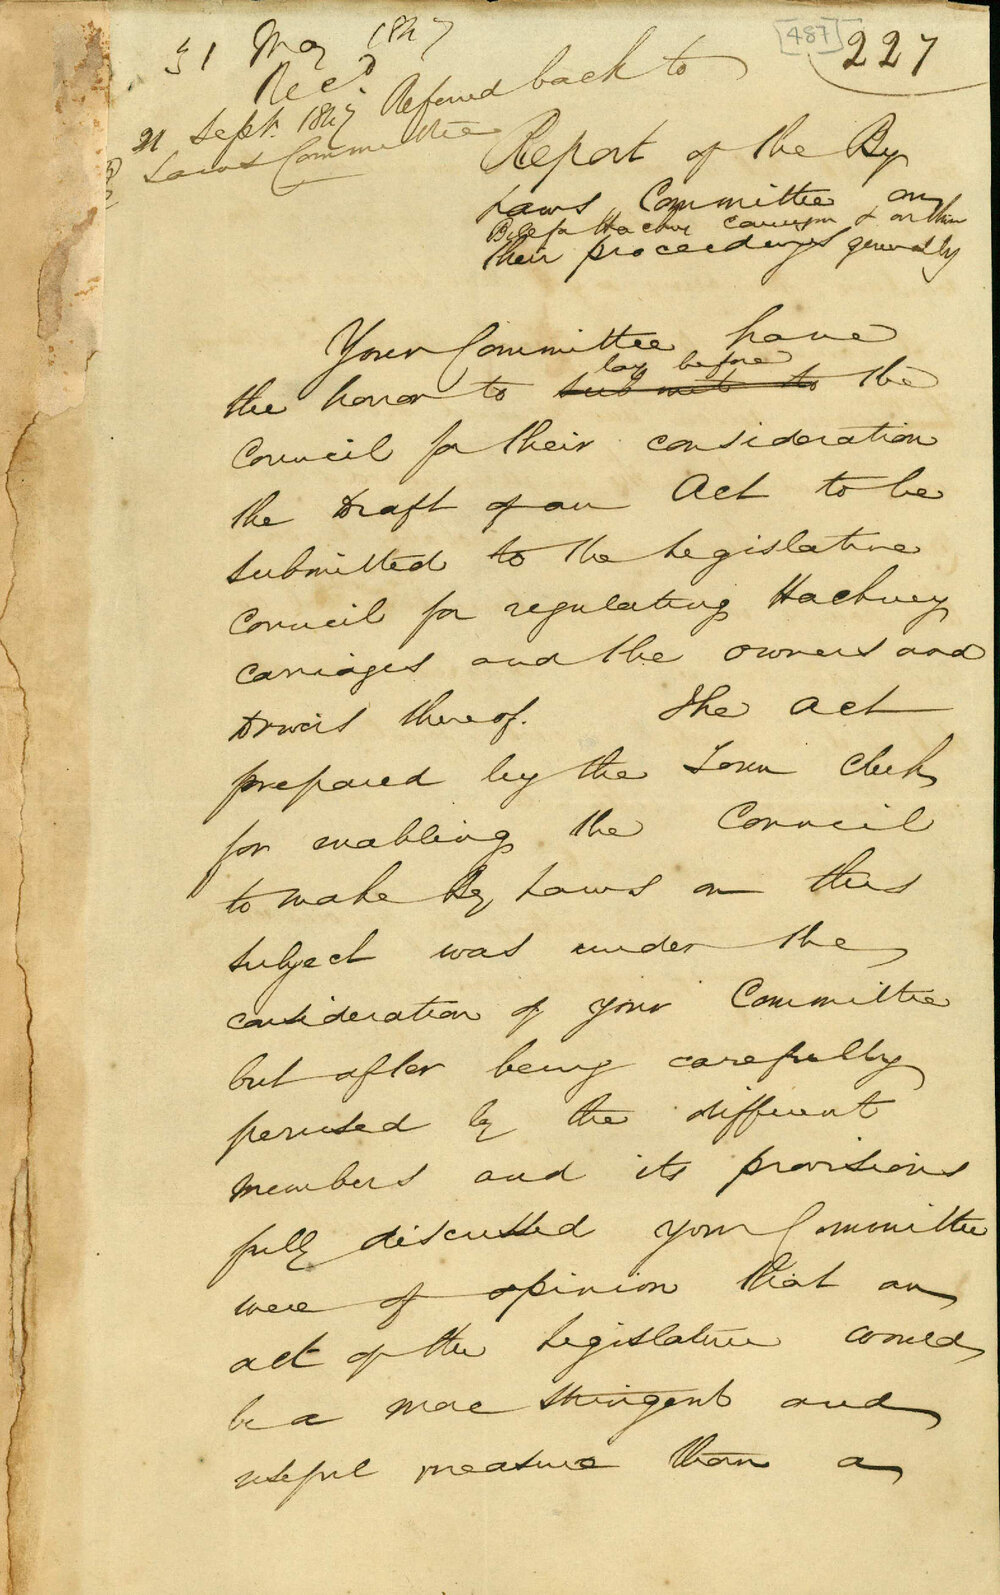 [487] 227
31 May 1847
Recd
21 Sept. 1847 Referred back to
By Laws Committee
Report of the By
Laws Committee on
Bill for Hackney Carriages & on
their proceedings generally
Your Committee have
lay before
the honor to submit to the
Council for their consideration
the Draft of an Act to be
submitted to the Legislative
Council for regulating Hackney
carriages and the owners and
Drivers thereof. The Act
prepared by the Town Clerk
for enabling the Council
to make By Laws on this
subject was under the
consideration of your Committee
but after being carefully
perused by the different
members and its provisions
fully discussed your Committee
were of opinion that an
act of the Legislature would
be a more stringent and
useful measure than a